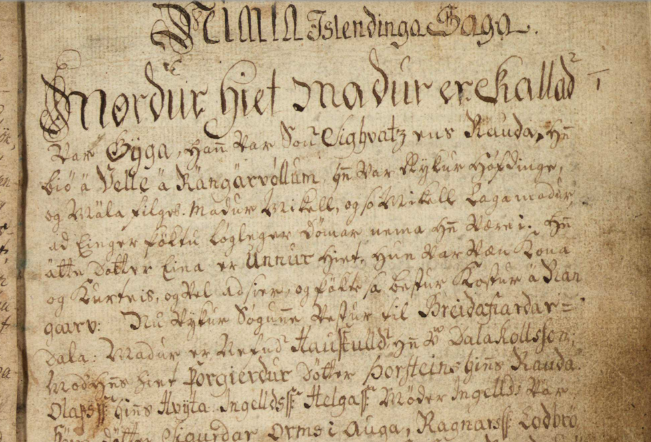 Islendinga Saga.
Mordur hiet madur er kallad
Var Gýga, hann Var Son Sighvatz ens Rauda, hn̄
bió á Velle á Rängárvöllum, hn̄ Var Rÿkur höfdinge,
og Mála filges madur Mikell, og so Mikell Lagamadur
ad Einger þöktu Lögleger dömar nema hn̄ Være i. hn̄
átte dotter Eina er Unnur hiet, hun Var Væn Kona
og Kurteis, og Vel ad sier, og þötte sa bestur Kostur á Ran
Nu Vÿkur Sogunne Vestur til Breidafiardar
dala: Madur er Nefnd Dalakollsson,
Modr hns hiet Þorgierdur dötter Þorsteins hins Rauda
hins Hvyta Ingelldss Helgass Möder Ingellds Var
dötter Sigurdar Orms i Auga, Ragnarss Lodbro